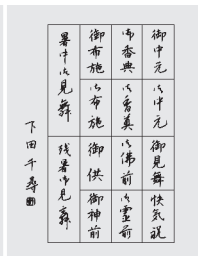 御中元
御中元
御見舞
快気祝
御香典
御香奠
御佛前
御霊前
御布施
御布施
御供
御神前
暑中御見舞
残暑御見舞
下田千尋